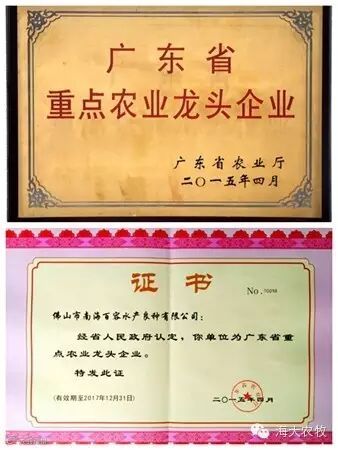 广东省
重点农业龙头企业
广东省农业厅
二〇一五年四月
证书
No.
佛山市南海百容水产良种有限公司：
经省人民政府认定，你单位为广东省重
点农业龙头企业。
特发此证
(有效期至2017年12月31日)
二〇一五年四月
海大农牧